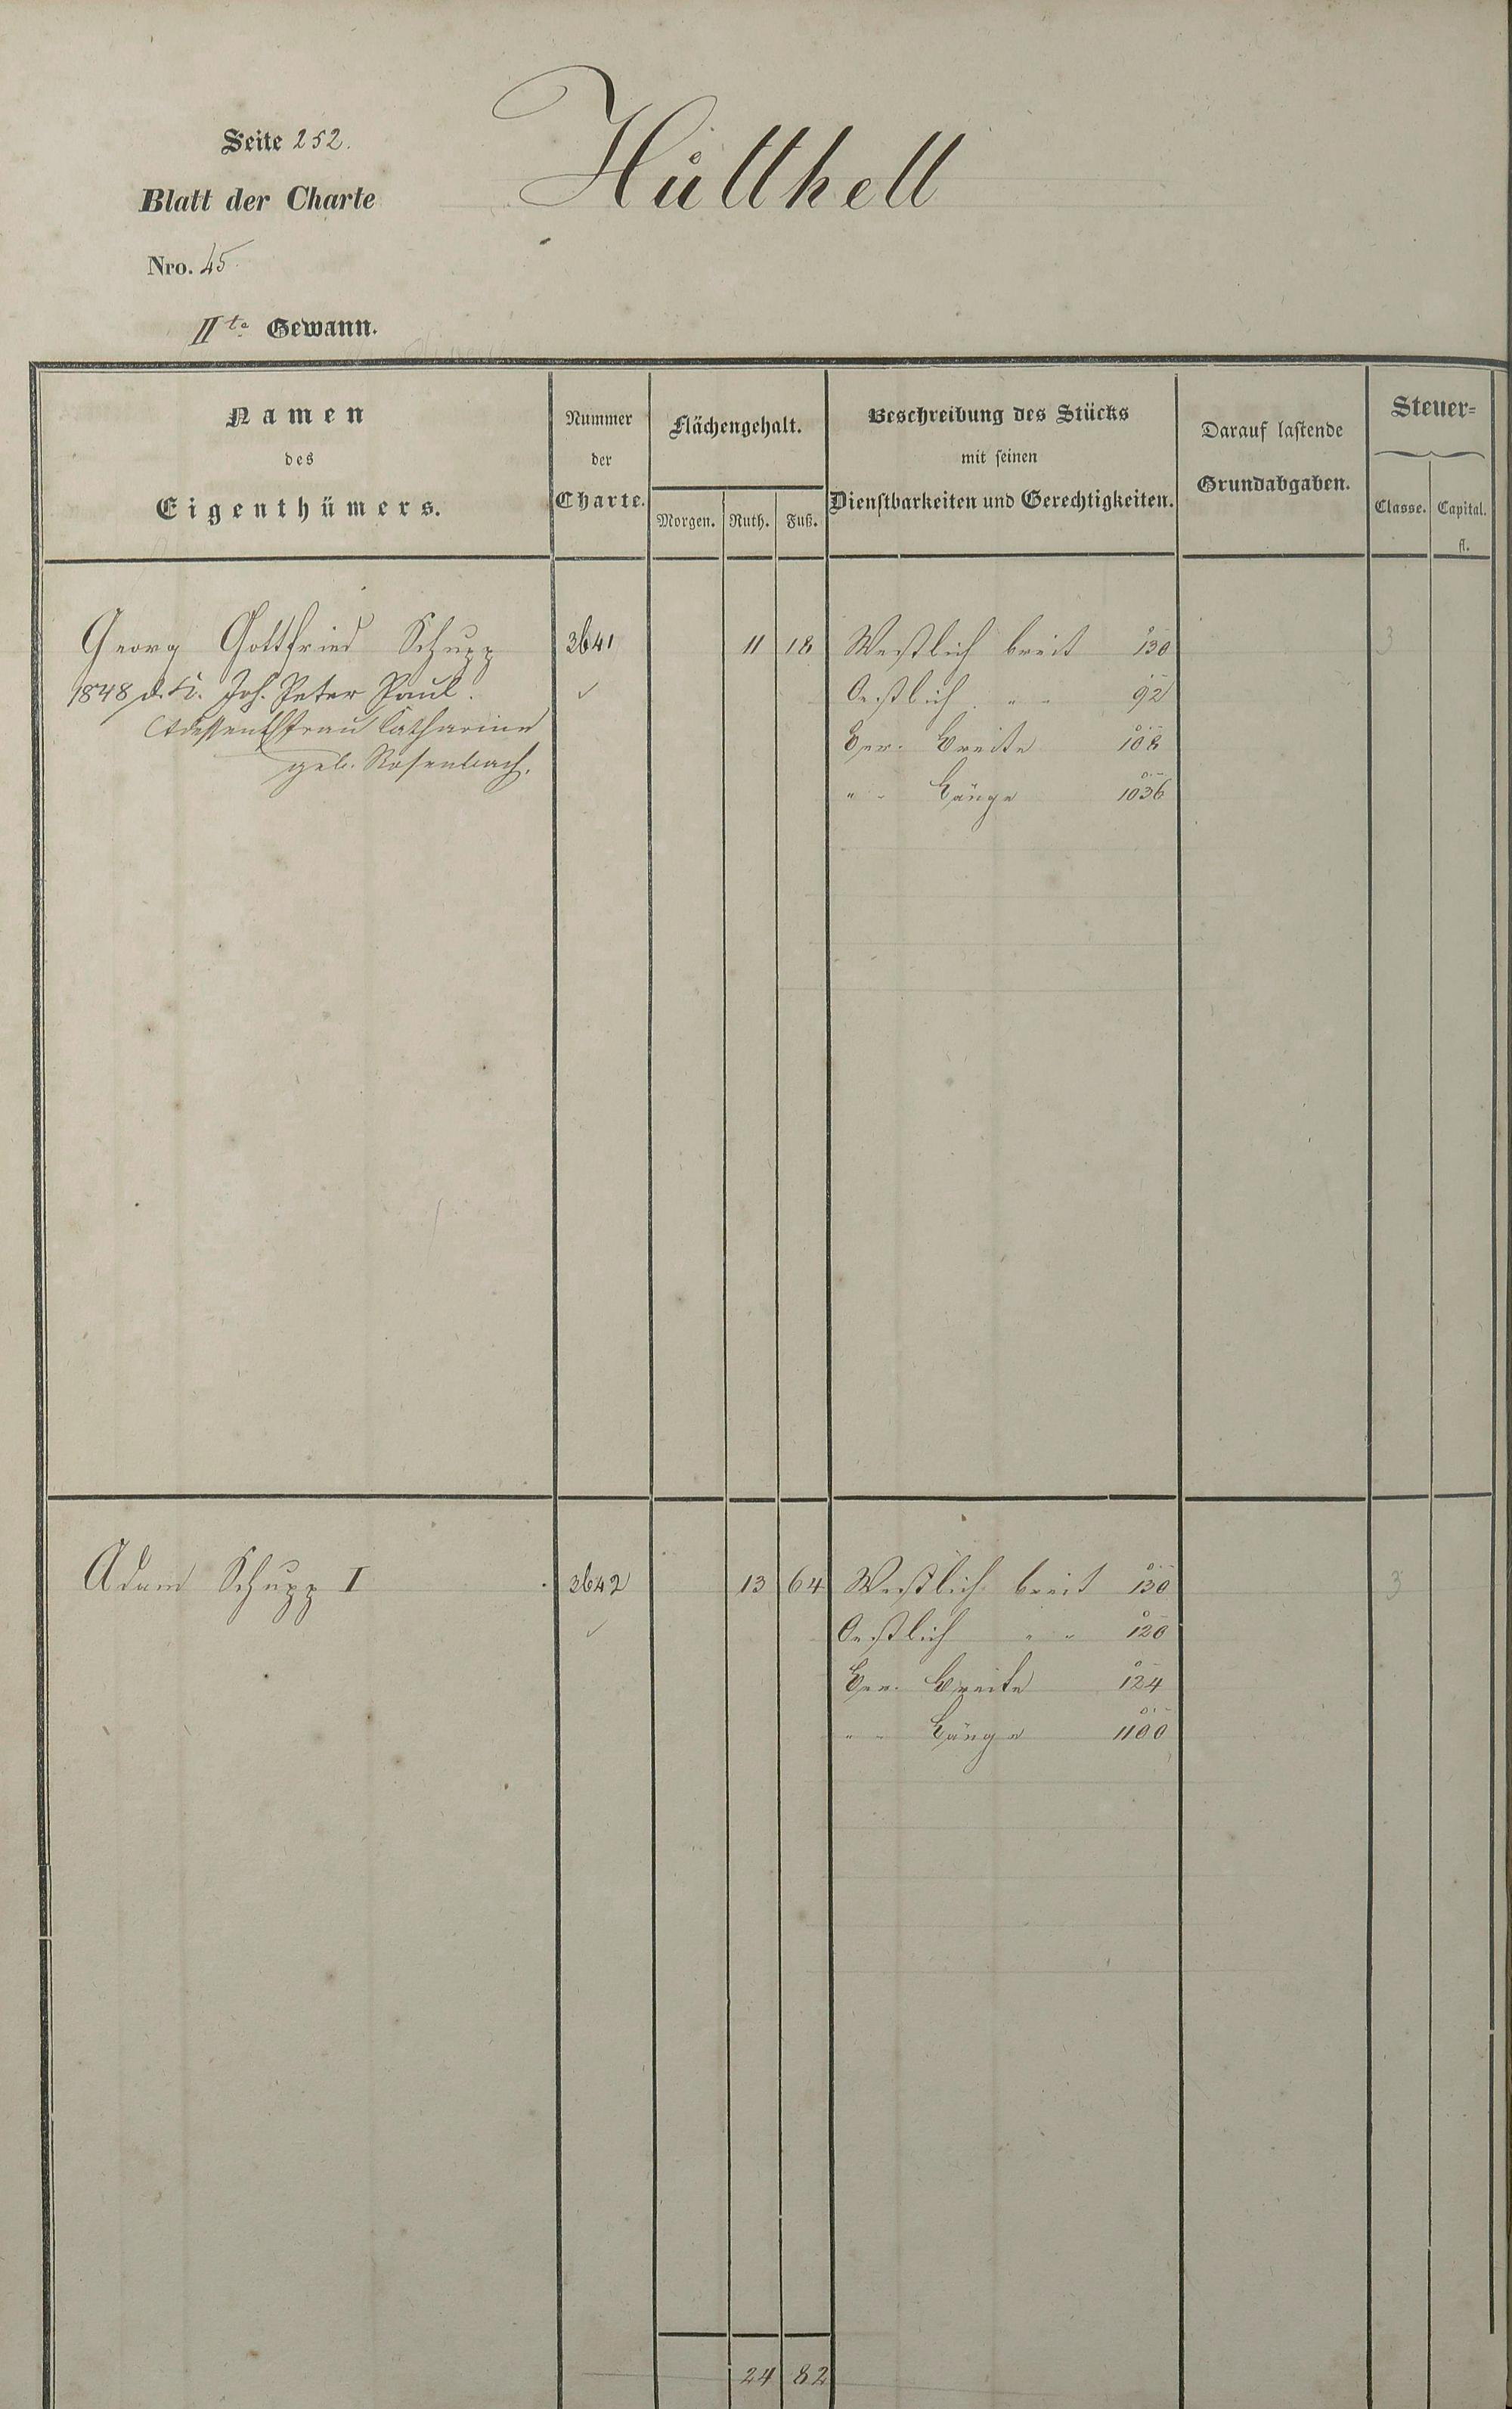 Seite 252.
Hütthell
Blatt der Charte
Nro. 45
IIte Gewann.
Namen
des
Eigenthümers.
Nummer
der
Charte.
Flächengehalt.
Morgen. Ruth. Fuß.
Beschreibung des Stücks
mit seinen
Dienstbarkeiten und Gerechtigkeiten.
Darauf lastende
Grundabgaben.
Steuer=
Classe. Capital.
fl.
Georg Gottfried Schupp 3641 11 18 Westlich breit 130 3
1848 d. K. Joh. Peter Paul. ✓ Oestlich " " 92
Ehefrau Catharine Ger. Breite 108
geb. Rosenbach. " " Länge 1036
Adam Schupp I 3642 13 64 Westlich breit 130 3
✓ Oestlich " " 120
Ger. Breite 124
" " Länge 1100
24 82